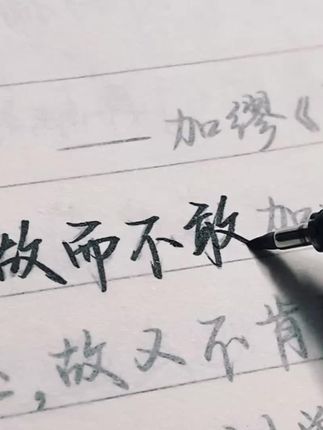 ——加缪《
故而不敢加
,故又不肯